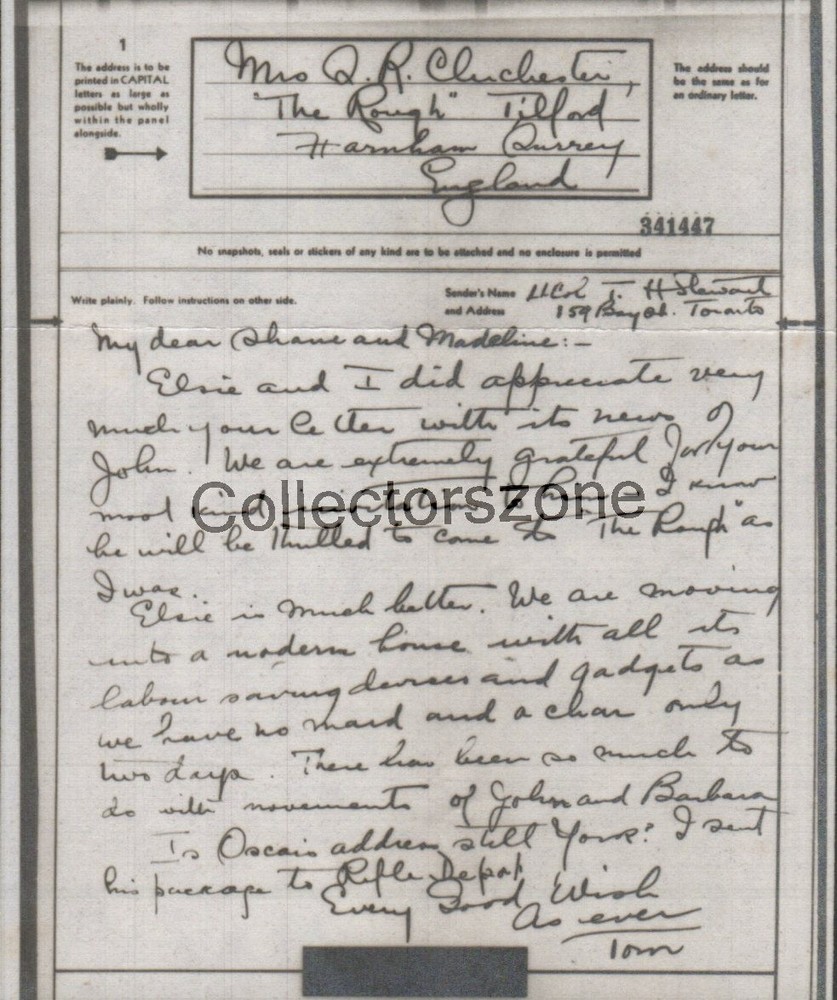 1
The address is to be
printed in CAPITAL
letters as large as
possible but wholly
within the panel
alongside.
Mrs Q. R. Chichester,
"The Rough" Tilford
Farnham Surrey
England
The address should
be the same as for
an ordinary letter.
341447
No snapshots, seals or stickers of any kind are to be attached and no enclosure is permitted
Write plainly. Follow instructions on other side.
Sender's Name
and Address
Lt Col T. H Stewart
159 Bay St. Toronto
My dear Shane and Madeline:-
Elsie and I did appreciate very
much your letter with its news of
John. We are extremely grateful for your
most kind invitation to him. I know
he will be thrilled to come to "The Rough" as
I was.
Elsie is much better. We are moving
into a modern house with all its
labour saving devices and gadgets as
we have no maid and a char only
two days. There has been so much to
do with movements of John and Barbara
Is Oscar's address still York? I sent
his package to Rifle Depot
Every Good Wish
As ever
Tom
Collectorszone